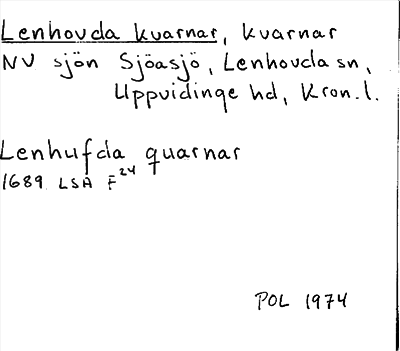 Lenhovda kvarnar, kvarnar
NV sjön Sjöasjö, Lenhovda sn,
Uppvidinge hd, Kron.l.
Lenhufda quarnar
1689 LSA F24
POL 1974